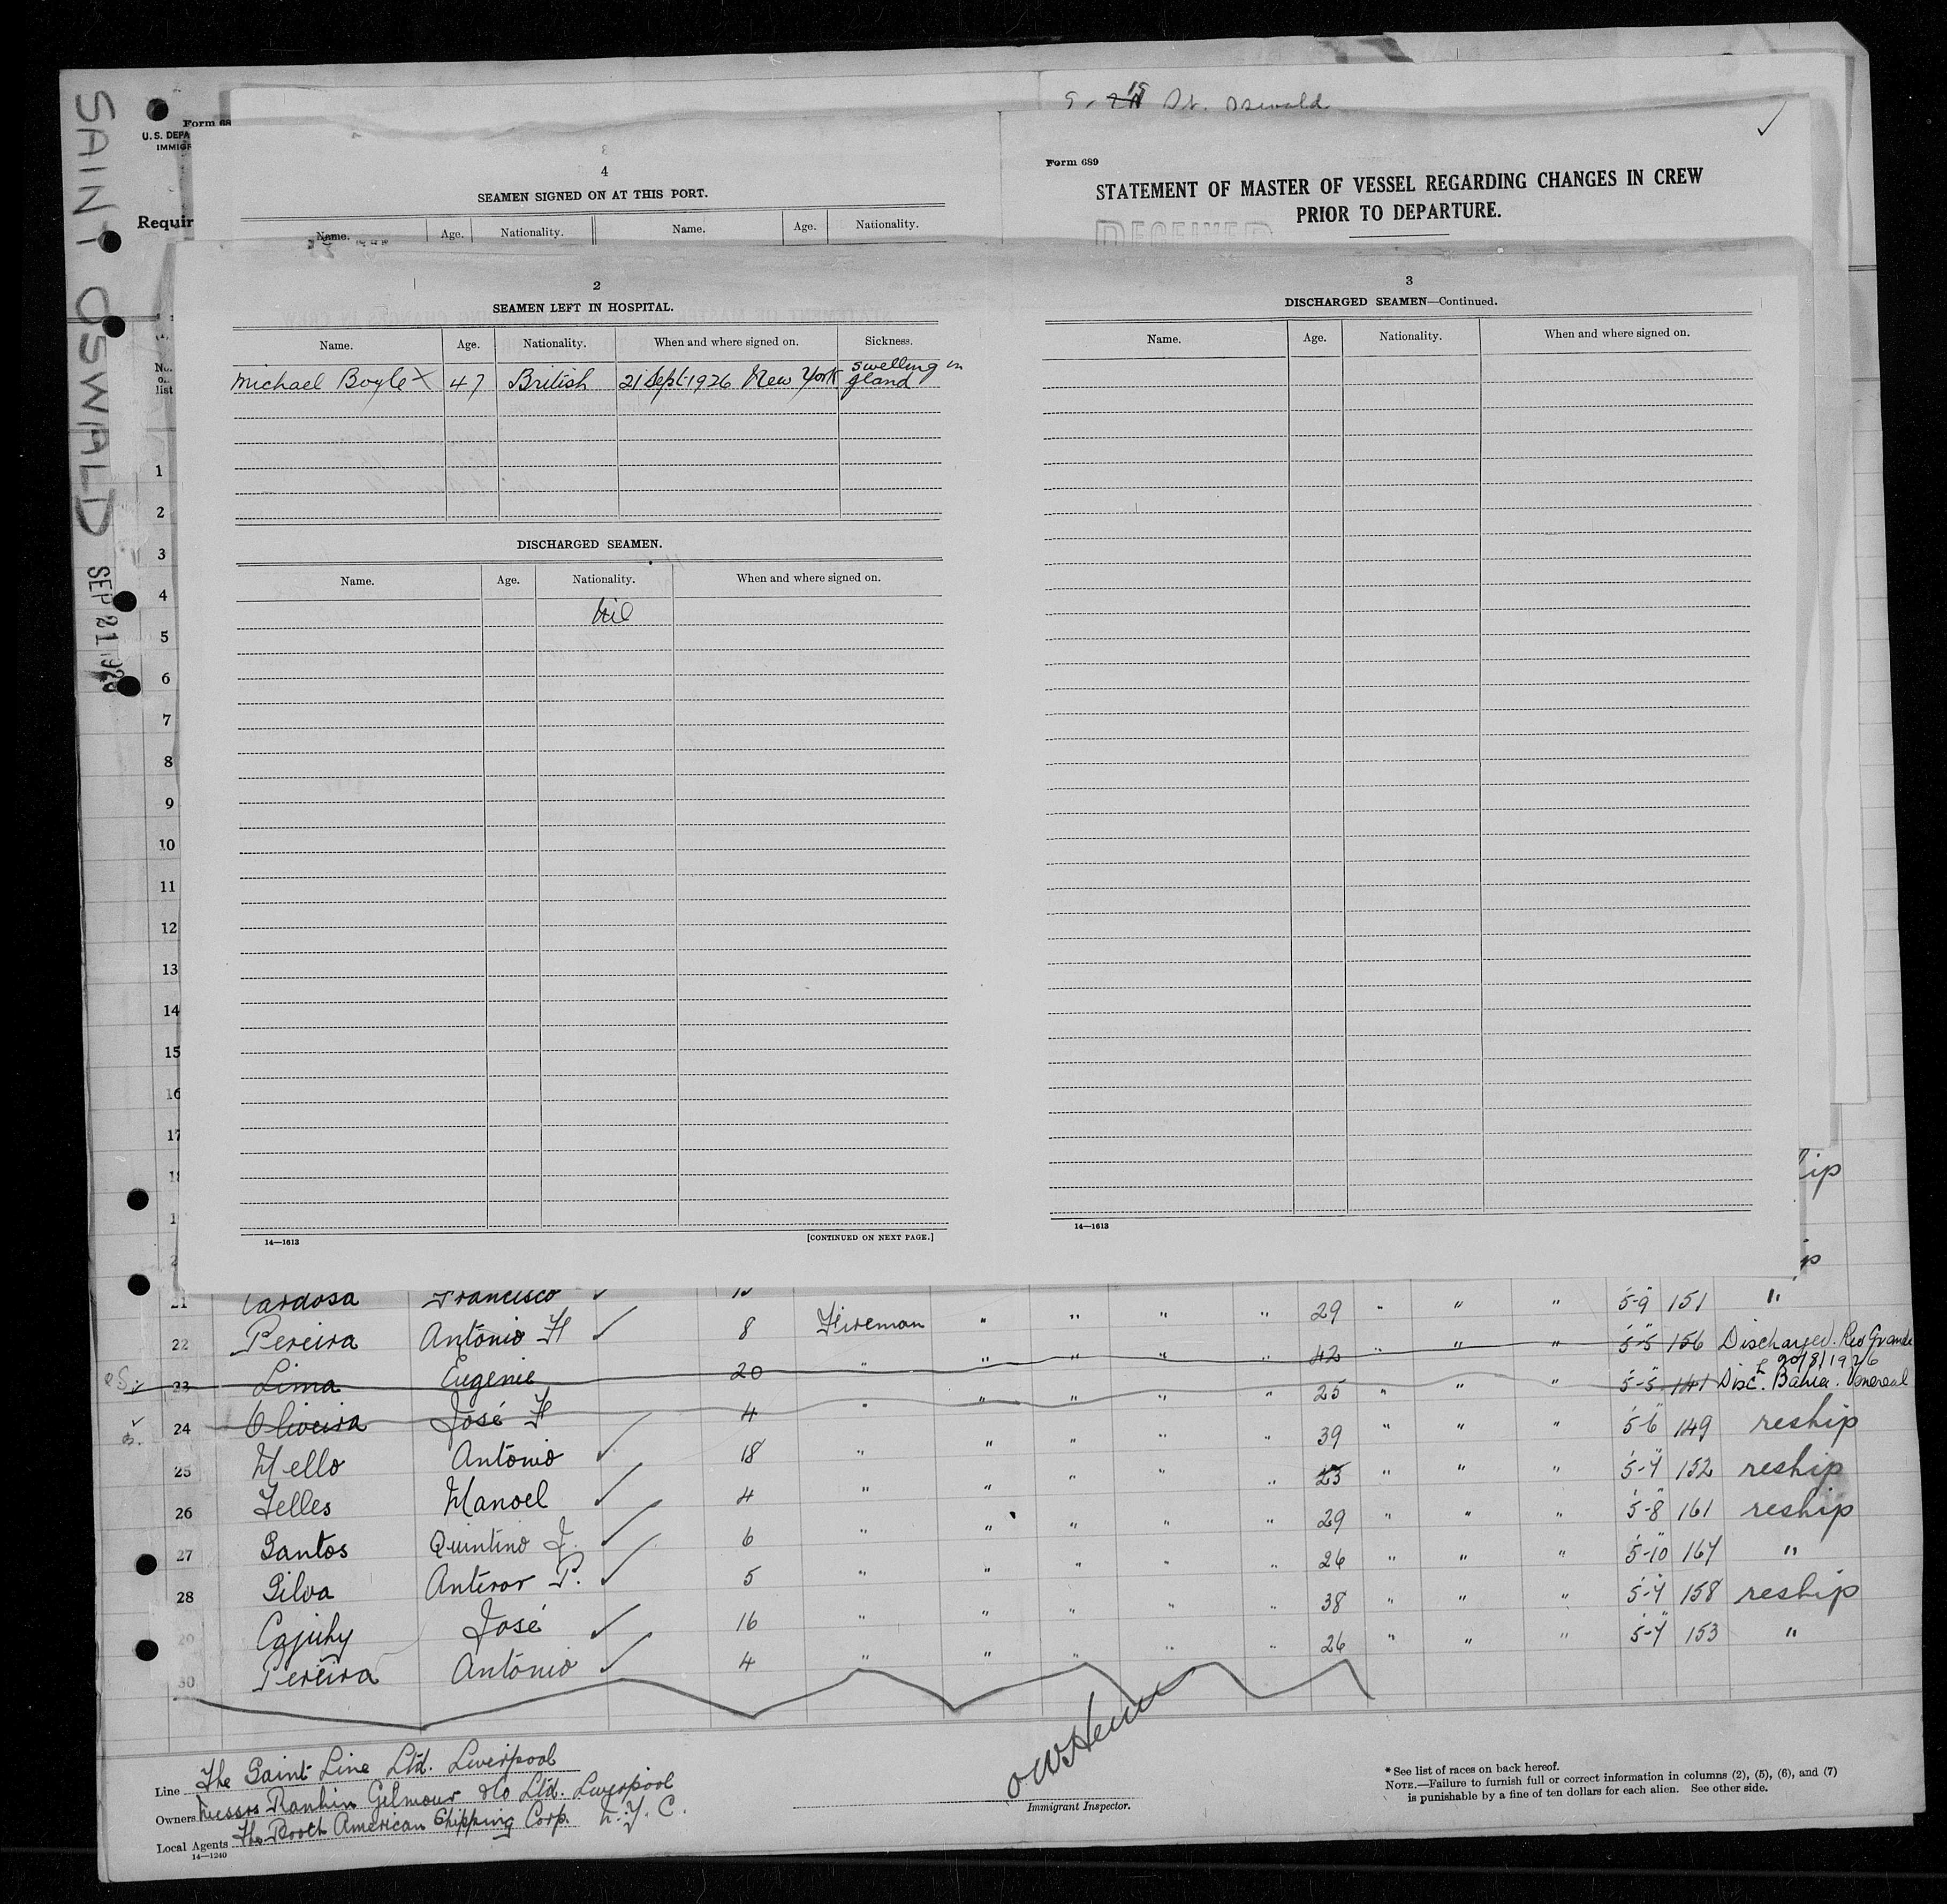 SAINT OSWALD SEP 21 1926
St. Oswald
Form 68
U. S. DEPA
IMMIGR
Requir
4
SEAMEN SIGNED ON AT THIS PORT.
Name. Age. Nationality. Name. Age. Nationality.
Form 689
STATEMENT OF MASTER OF VESSEL REGARDING CHANGES IN CREW
PRIOR TO DEPARTURE.
RECEIVED
2
SEAMEN LEFT IN HOSPITAL.
Name. Age. Nationality. When and where signed on. Sickness.
Michael Boyle x 47 British 21 Sept 1926 New York swelling in
gland
DISCHARGED SEAMEN.
Name. Age. Nationality. When and where signed on.
Nil
14—1613 [CONTINUED ON NEXT PAGE.]
3
DISCHARGED SEAMEN—Continued.
Name. Age. Nationality. When and where signed on.
14—1613
No.
on
list
1
2
3
4
5
6
7
8
9
10
11
12
13
14
15
16
17
18
1
2
21 Cardosa Francisco ✓ " " " " 29 " " " 5-9 151 "
22 Pereira Antônio F ✓ 8 Fireman " " " " 42 " " " 5-5 156 Discharged. Rio Grande
20/8/1926
23 Lima Eugenie 20 " " " " " 25 " " " 5-5 141 Disc. Bahia. Venereal
24 Oliveira José F 4 " " " " " 39 " " " 5-6 149 reship
25 Mello Antônio ✓ 18 " " " " " 23 " " " 5-7 152 reship
26 Telles Manoel ✓ 4 " " " " " 29 " " " 5-8 161 reship
27 Santos Quintino J. ✓ 6 " " " " " 26 " " " 5-10 167 "
28 Silva Anteror P. ✓ 5 " " " " " 38 " " " 5-7 158 reship
29 Cajuhy José ✓ 16 " " " " " 26 " " " 5-7 153 "
30 Pereira Antônio ✓ 4 " " "
Line The Saint Line Ltd. Liverpool
Owners Messrs Rankin Gilmour & Co Ltd. Liverpool
Local Agents The Booth American Shipping Corp. N.Y.C.
14—1240
Immigrant Inspector.
* See list of races on back hereof.
NOTE.—Failure to furnish full or correct information in columns (2), (5), (6), and (7)
is punishable by a fine of ten dollars for each alien. See other side.